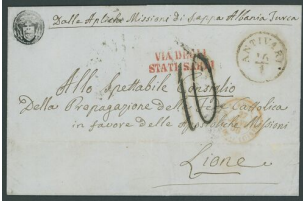 Dalle Aptiche Missioni di Sappa Albania Turca
ANTIVARI
VIA DEGLI
STATI SARDI
10
Allo Spettabile Consiglio
Della Propagazione della Fede Cattolica
in favore delle Apostoliche Missioni
Lione